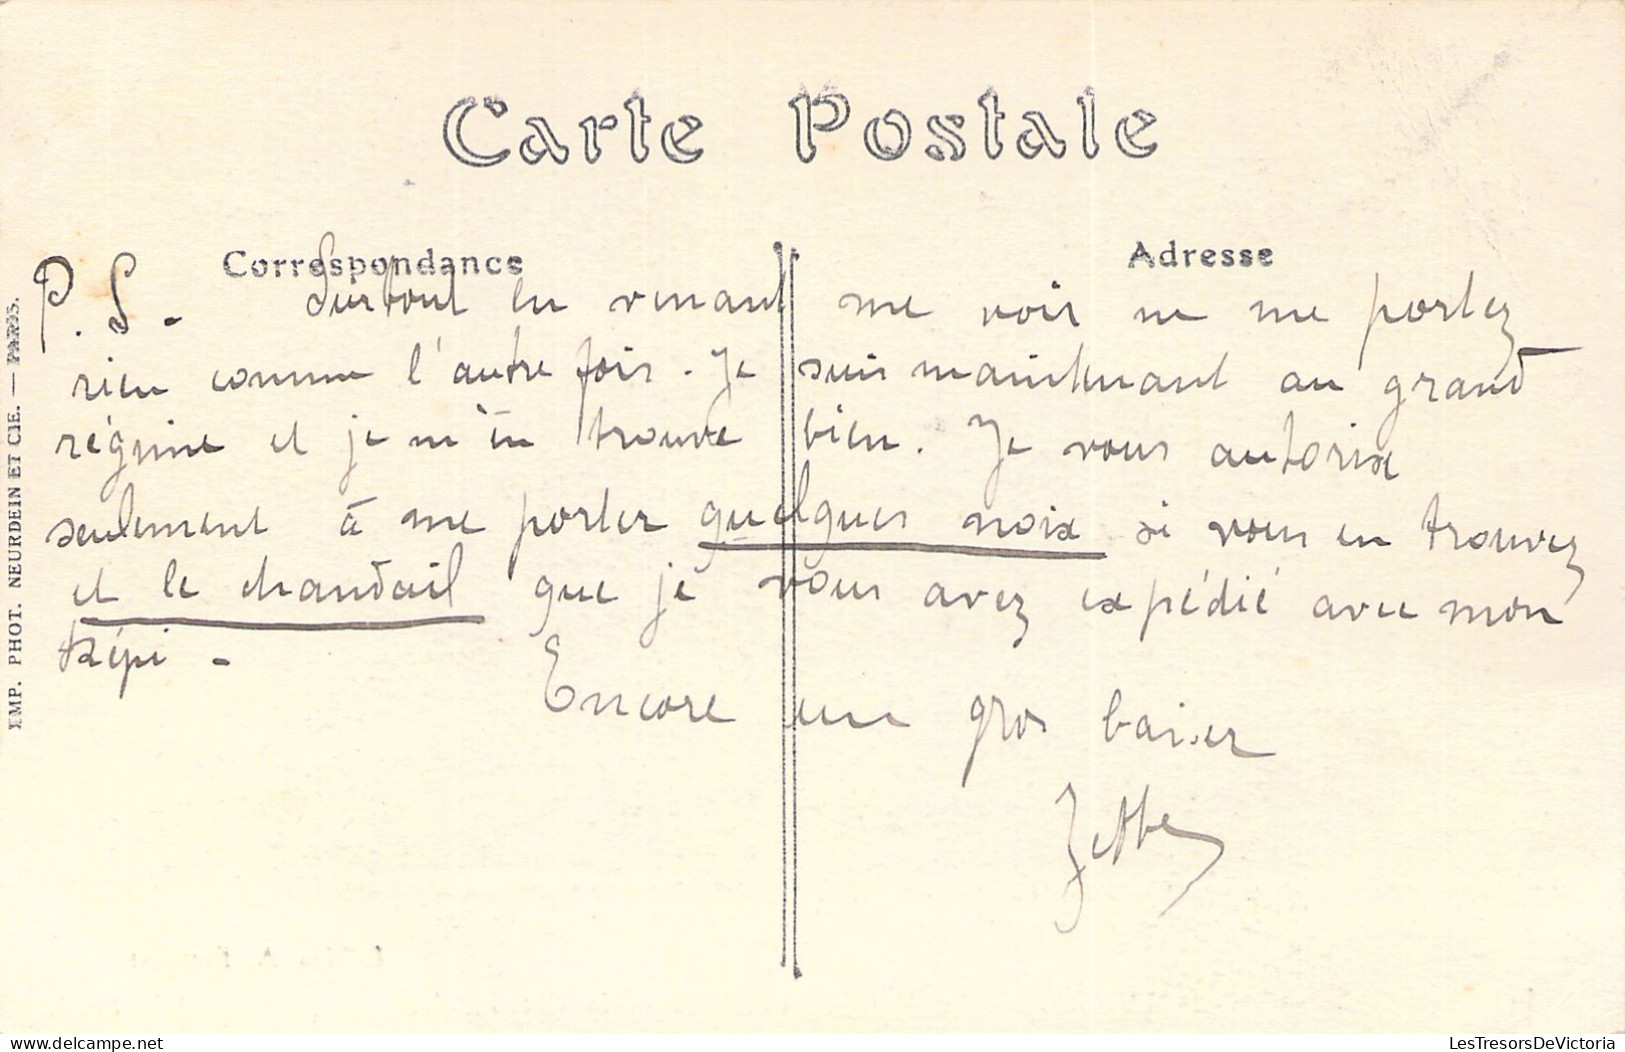 Carte Postale
Correspondance
Adresse
P.S. Surtout en venant me voir ne me portez
rien comme l'autre fois. Je suis maintenant au grand
régime et je m'en trouve bien. Je vous autorise
seulement à me porter quelques noix si vous en trouvez
et le chandail que je vous avez expédié avec mon
képi -
Encore un gros baiser
EMP. PHOT. NEURDEIN ET CIE. — PARIS.
delcampe.net
LesTresorsDeVictoria